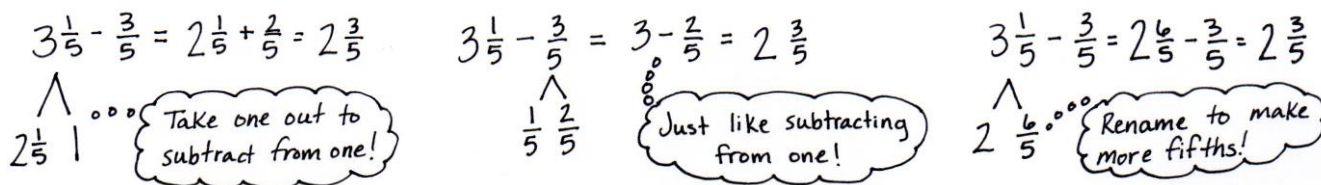 3 1/5 - 3/5 = 2 1/5 + 2/5 = 2 3/5
2 1/5 1
Take one out to
subtract from one!
3 1/5 - 3/5 = 3 - 2/5 = 2 3/5
1/5 2/5
Just like subtracting
from one!
3 1/5 - 3/5 = 2 6/5 - 3/5 = 2 3/5
2 6/5
Rename to make
more fifths!